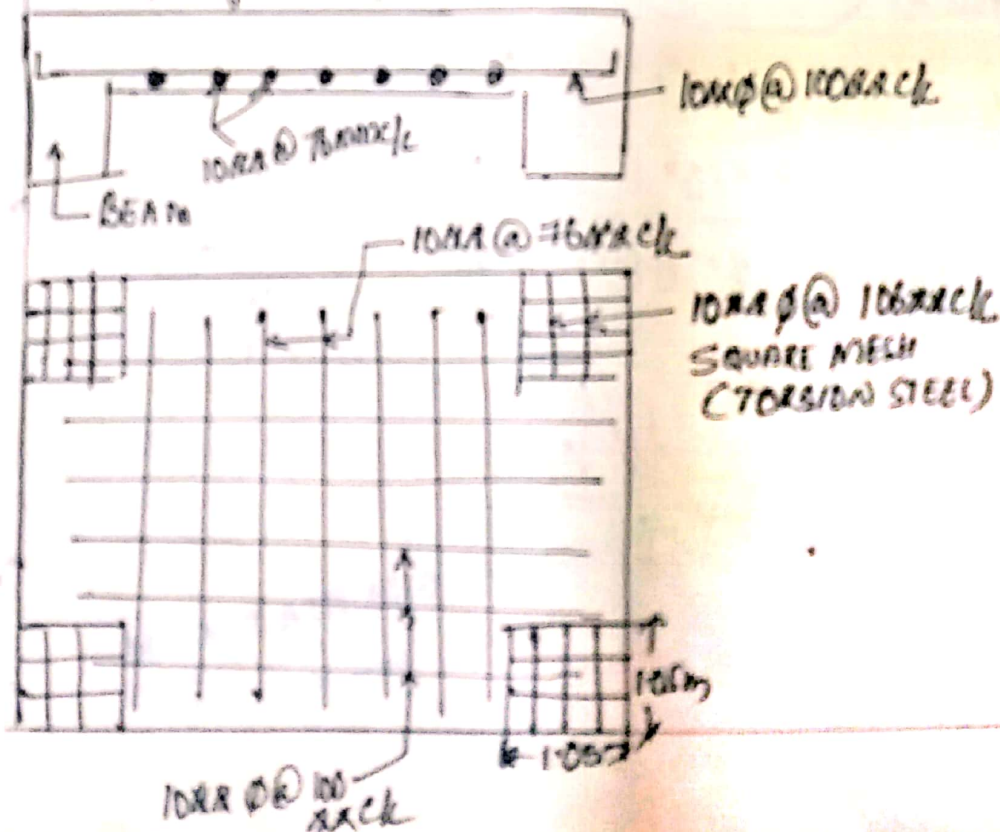 10MM Ø @ 100MM C/C
10MM @ 76MM C/C
BEAM
10MM @ 76MM C/C
10MM Ø @ 106MM C/C
SQUARE MESH
(TORSION STEEL)
1.05m
1.05
10MM Ø @ 100
MM C/C